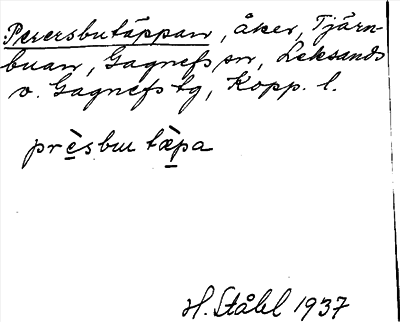 Perersbutäppan, åker, Tjärn-
buan, Gagnefs sn, Leksands
o. Gagnefs tg, Kopp. l.
prèsbu tèpa
H. Ståhl 1937